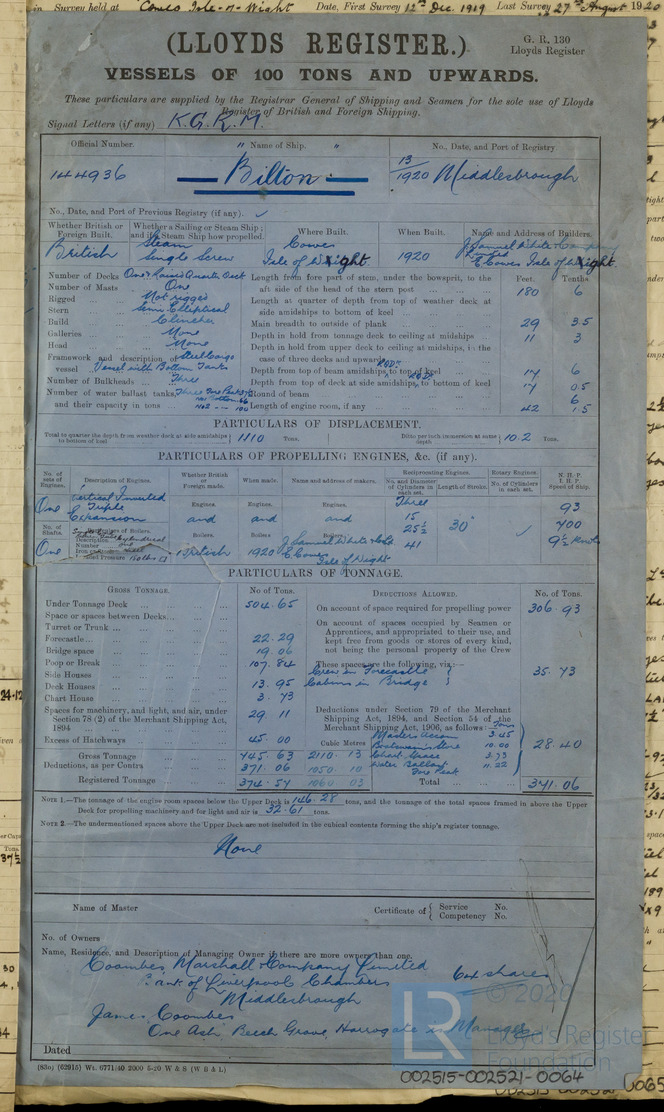 in Survey held at Cowes Isle of Wight Date, First Survey 12th Dec. 1919 Last Survey 27th August 1920
(LLOYDS REGISTER.)
G. R. 130
Lloyds Register
VESSELS OF 100 TONS AND UPWARDS.
These particulars are supplied by the Registrar General of Shipping and Seamen for the sole use of Lloyds
Register of British and Foreign Shipping.
Signal Letters (if any) K.G.R.M.
Official Number. " Name of Ship. " No., Date, and Port of Registry.
144936 Bilton 13/1920 Middlesbrough
No., Date, and Port of Previous Registry (if any).
Whether British or Foreign Built. Whether a Sailing or Steam Ship; and if a Steam Ship how propelled. Where Built. When Built. Name and Address of Builders.
British Steam Single Screw Cowes Isle of Wight 1920 J. Samuel White & Company Limited E. Cowes Isle of Wight.
Number of Decks One & Raised Quarter Deck
Number of Masts One
Rigged Not rigged
Stern Semi Elliptical
Build Clincher
Galleries None
Head None
Framework and description of vessel Steel Cargo Vessel with Bottom Tanks
Number of Bulkheads Three
Number of water ballast tanks, Three
and their capacity in tons
Feet. Tenths.
Length from fore part of stem, under the bowsprit, to the aft side of the head of the stern post 180 6
Length at quarter of depth from top of weather deck at side amidships to bottom of keel
Main breadth to outside of plank 29 3.5
Depth in hold from tonnage deck to ceiling at midships 11 3
Depth in hold from upper deck to ceiling at midships, in the case of three decks and upwards
Depth from top of beam amidships to top of keel 14 6
Depth from top of deck at side amidships to bottom of keel 14 0.5
Round of beam 6
Length of engine room, if any 42 1.5
PARTICULARS OF DISPLACEMENT.
Total to quarter the depth from weather deck at side amidships to bottom of keel 1110 Tons. Ditto per inch immersion at same depth 10.2 Tons.
PARTICULARS OF PROPELLING ENGINES, &c. (if any).
No. of sets of Engines. Description of Engines. Whether British or Foreign made. When made. Name and address of makers. Reciprocating Engines. No. and Diameter of Cylinders in each set. Length of Stroke. Rotary Engines. No. of Cylinders in each set. N. H. P. I. H. P. Speed of Ship.
One Vertical Inverted Triple Expansion Engines. and Engines. and Engines. and Three 15 25½ 41 30" 93 700 9½ Knots
No. of Shafts. Description of Boilers. Boilers. Boilers. Boilers.
One British 1920 J. Samuel White & Co Ltd E. Cowes Isle of Wight
PARTICULARS OF TONNAGE.
GROSS TONNAGE. No. of Tons.
Under Tonnage Deck 504.65
Space or spaces between Decks
Turret or Trunk
Forecastle 22.29
Bridge space 19.06
Poop or Break 107.84
Side Houses
Deck Houses 13.95
Chart House 3.73
Spaces for machinery, and light, and air, under Section 78 (2) of the Merchant Shipping Act, 1894 29.11
Excess of Hatchways 45.00
Cubic Metres
Gross Tonnage 745.63 2110.13
Deductions, as per Contra 371.06 1050.10
Registered Tonnage 374.57 1060.03
DEDUCTIONS ALLOWED. No. of Tons.
On account of space required for propelling power 306.93
On account of spaces occupied by Seamen or Apprentices, and appropriated to their use, and kept free from goods or stores of every kind, not being the personal property of the Crew
These spaces are the following, viz.:—
Crew in Forecastle
Cabins in Bridge 35.73
Deductions under Section 79 of the Merchant Shipping Act, 1894, and Section 54 of the Merchant Shipping Act, 1906, as follows: Tons
Master's Accom 3.45
Boatswain's Store 10.00
Chart Space 3.73
Water Ballast Fore Peak 11.22
28.40
Total 371.06
NOTE 1.—The tonnage of the engine room spaces below the Upper Deck is 146.28 tons, and the tonnage of the total spaces framed in above the Upper
Deck for propelling machinery and for light and air is 32.61 tons.
NOTE 2.—The undermentioned spaces above the Upper Deck are not included in the cubical contents forming the ship's register tonnage.
None
Name of Master Certificate of { Service No. Competency No.
No. of Owners
Name, Residence, and Description of Managing Owner if there are more owners than one.
Coombes, Marshall & Company Limited
Bank of Liverpool Chambers 64 shares
Middlesbrough
James Coombes
One Ash Beech Grove, Harrogate is Manager
Dated
(83o) (62915) Wt. 6771/40 2000 5-20 W & S (W B & L)
LR © 2020
Lloyd's Register
Foundation
002515-002521-0064